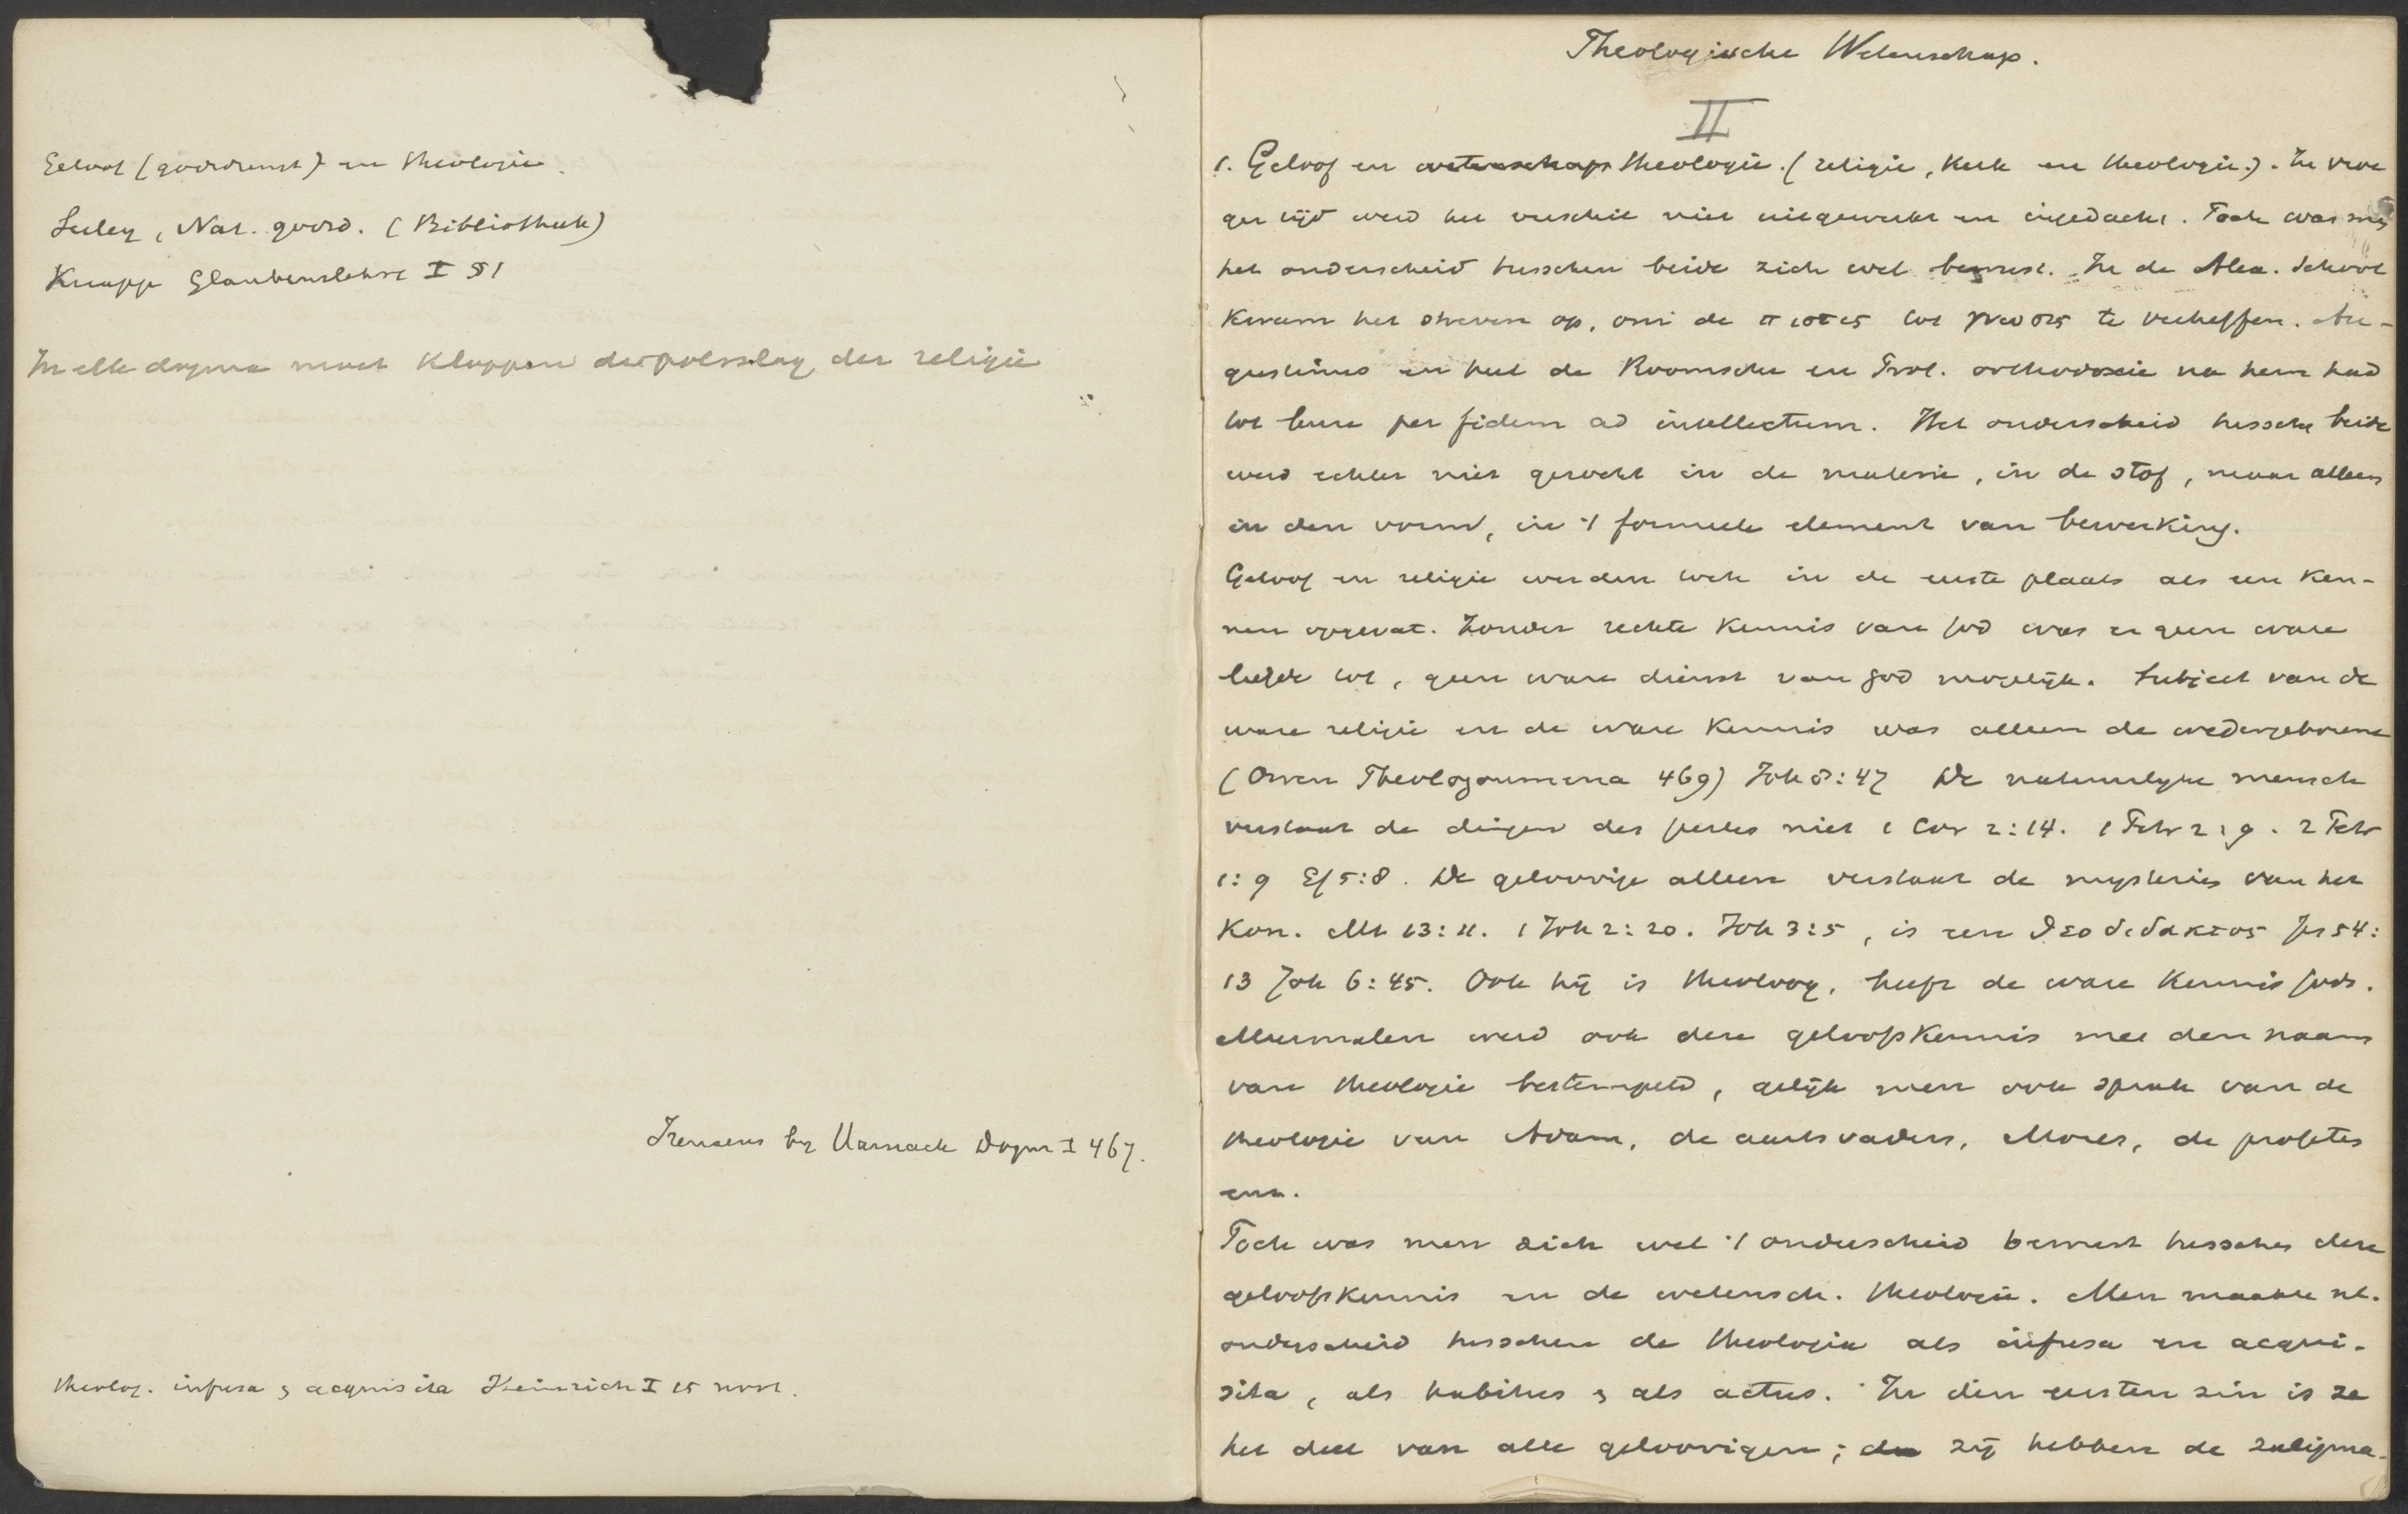 Geloof (godsdienst) en theologie.
Seeley, Nat. godsd. (Bibliotheek)
Knapp Glaubenslehre I § 1
In elk dogma moet kloppen de polsslag der religie
Irenaeus by Harnack Dogm I 467.
theolog. infusa & acquisita Heinrich I 15 noot.
Theologische Wetenschap.
II
1. Geloof en wetenschap theologie. (religie, kerk en theologie.). In vroe
ger tijd werd het verschil niet uitgewerkt en ingedacht. Toch was men
het onderscheid tusschen beide zich wel bewust. In de Alex. School
kwam het streven op, om de πιστις tot γνωσις te verheffen. Au-
gustinus en heel de Roomsche en Prot. orthodoxie na hem had
tot leuze per fidem ad intellectum. Het onderscheid tussche beide
werd echter niet gezocht in de materie, in de stof, maar alleen
in den vorm, in 't formeele element van bewerking.
Geloof en religie werden toch in de eerste plaats als een ken-
nen opgevat. Zonder rechte kennis van God was er geen ware
liefde tot, geen ware dienst van God mogelijk. Subject van de
ware religie en de ware kennis was alleen de wedergeborene
(Owen Theologoumena 469) Joh 8:47 De natuurlyke mensch
verstaat de dingen des Geestes niet 1 Cor 2:14. 1 Petr 2:9. 2 Petr
1:9 Ef 5:8. De geloovige alleen verstaat de mysteries van het
Kon. Mt 13:11. 1 Joh 2:20. Joh 3:5, is een θεοδιδακτος Jes 54:
13 Joh 6:45. Ook hij is theoloog, heeft de ware kennis Gods.
Meermalen werd ook deze geloofskennis met den naam
van theologie bestempeld, gelijk men ook sprak van de
theologie van Adam, de aartsvaders, Mozes, de profeten
enz.
Toch was men zich wel 't onderscheid bewust tusschen deze
geloofskennis en de wetensch. theologie. Men maakte nl.
onderscheid tusschen de theologie als infusa en acqui-
sita, als habitus & als actus. In dien eersten zin is ze
het deel van alle geloovigen; de zij hebben de zaligma-